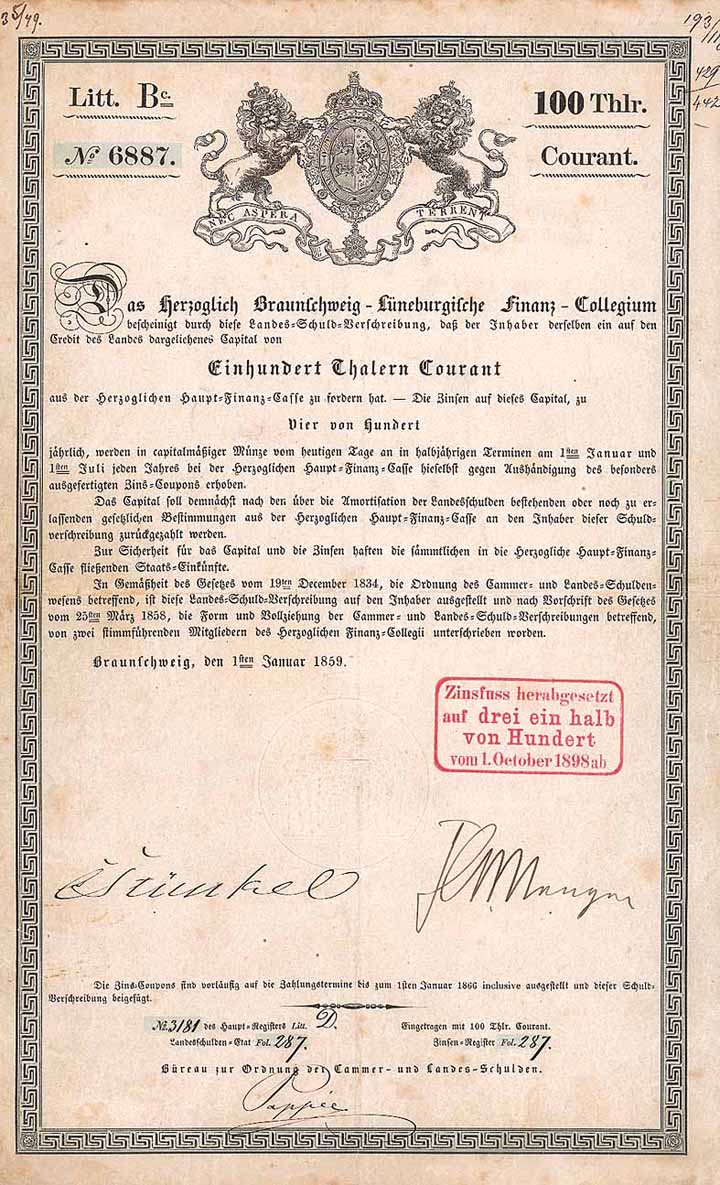 35/49.
429
442
Litt. Bc.
100 Thlr.
No 6887.
Courant.
NEC ASPERA TERRENT
Das Herzoglich Braunschweig-Lüneburgische Finanz-Collegium
bescheinigt durch diese Landes-Schuld-Verschreibung, daß der Inhaber derselben ein auf den
Credit des Landes dargeliehenes Capital von
Einhundert Thalern Courant
aus der Herzoglichen Haupt-Finanz-Casse zu fordern hat. — Die Zinsen auf dieses Capital, zu
Vier von Hundert
jährlich, werden in capitalmäßiger Münze vom heutigen Tage an in halbjährigen Terminen am 1sten Januar und
1sten Juli jeden Jahres bei der Herzoglichen Haupt-Finanz-Casse hieselbst gegen Aushändigung des besonders
ausgefertigten Zins-Coupons erhoben.
Das Capital soll demnächst nach den über die Amortisation der Landesschulden bestehenden oder noch zu er-
lassenden gesetzlichen Bestimmungen aus der Herzoglichen Haupt-Finanz-Casse an den Inhaber dieser Schuld-
verschreibung zurückgezahlt werden.
Zur Sicherheit für das Capital und die Zinsen haften die sämmtlichen in die Herzogliche Haupt-Finanz-
Casse fließenden Staats-Einkünfte.
In Gemäßheit des Gesetzes vom 19ten December 1834, die Ordnung des Cammer- und Landes-Schulden-
wesens betreffend, ist diese Landes-Schuld-Verschreibung auf den Inhaber ausgestellt und nach Vorschrift des Gesetzes
vom 25sten März 1858, die Form und Vollziehung der Cammer- und Landes-Schuld-Verschreibungen betreffend,
von zwei stimmführenden Mitgliedern des Herzoglichen Finanz-Collegii unterschrieben worden.
Braunschweig, den 1sten Januar 1859.
Zinsfuss herabgesetzt
auf drei ein halb
von Hundert
vom 1. October 1898 ab
Stünkel
Die Zins-Coupons sind vorläufig auf die Zahlungstermine bis zum 1sten Januar 1866 inclusive ausgestellt und dieser Schuld-
Verschreibung beigefügt.
No. 3181 des Haupt-Registers Litt. D. Eingetragen mit 100 Thlr. Courant.
Landesschulden-Etat Fol. 287. Zinsen-Register Fol. 287.
Büreau zur Ordnung der Cammer- und Landes-Schulden.